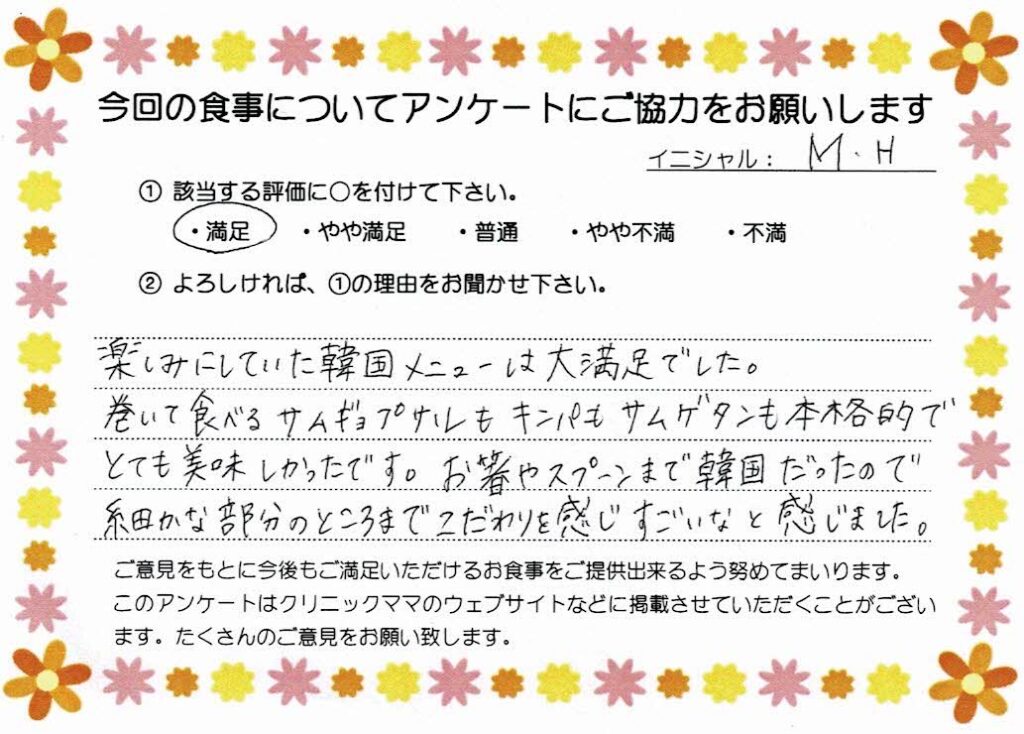 今回の食事についてアンケートにご協力をお願いします
イニシャル： M・H
① 該当する評価に○を付けて下さい。
・満足 ・やや満足 ・普通 ・やや不満 ・不満
② よろしければ、①の理由をお聞かせ下さい。
楽しみにしていた韓国メニューは大満足でした。
巻いて食べるサムギョプサルもキンパもサムゲタンも本格的で
とても美味しかったです。お箸やスプーンまで韓国だったので
細かな部分のところまでこだわりを感じすごいなと感じました。
ご意見をもとに今後もご満足いただけるお食事をご提供出来るよう努めてまいります。
このアンケートはクリニックママのウェブサイトなどに掲載させていただくことがござい
ます。たくさんのご意見をお願い致します。